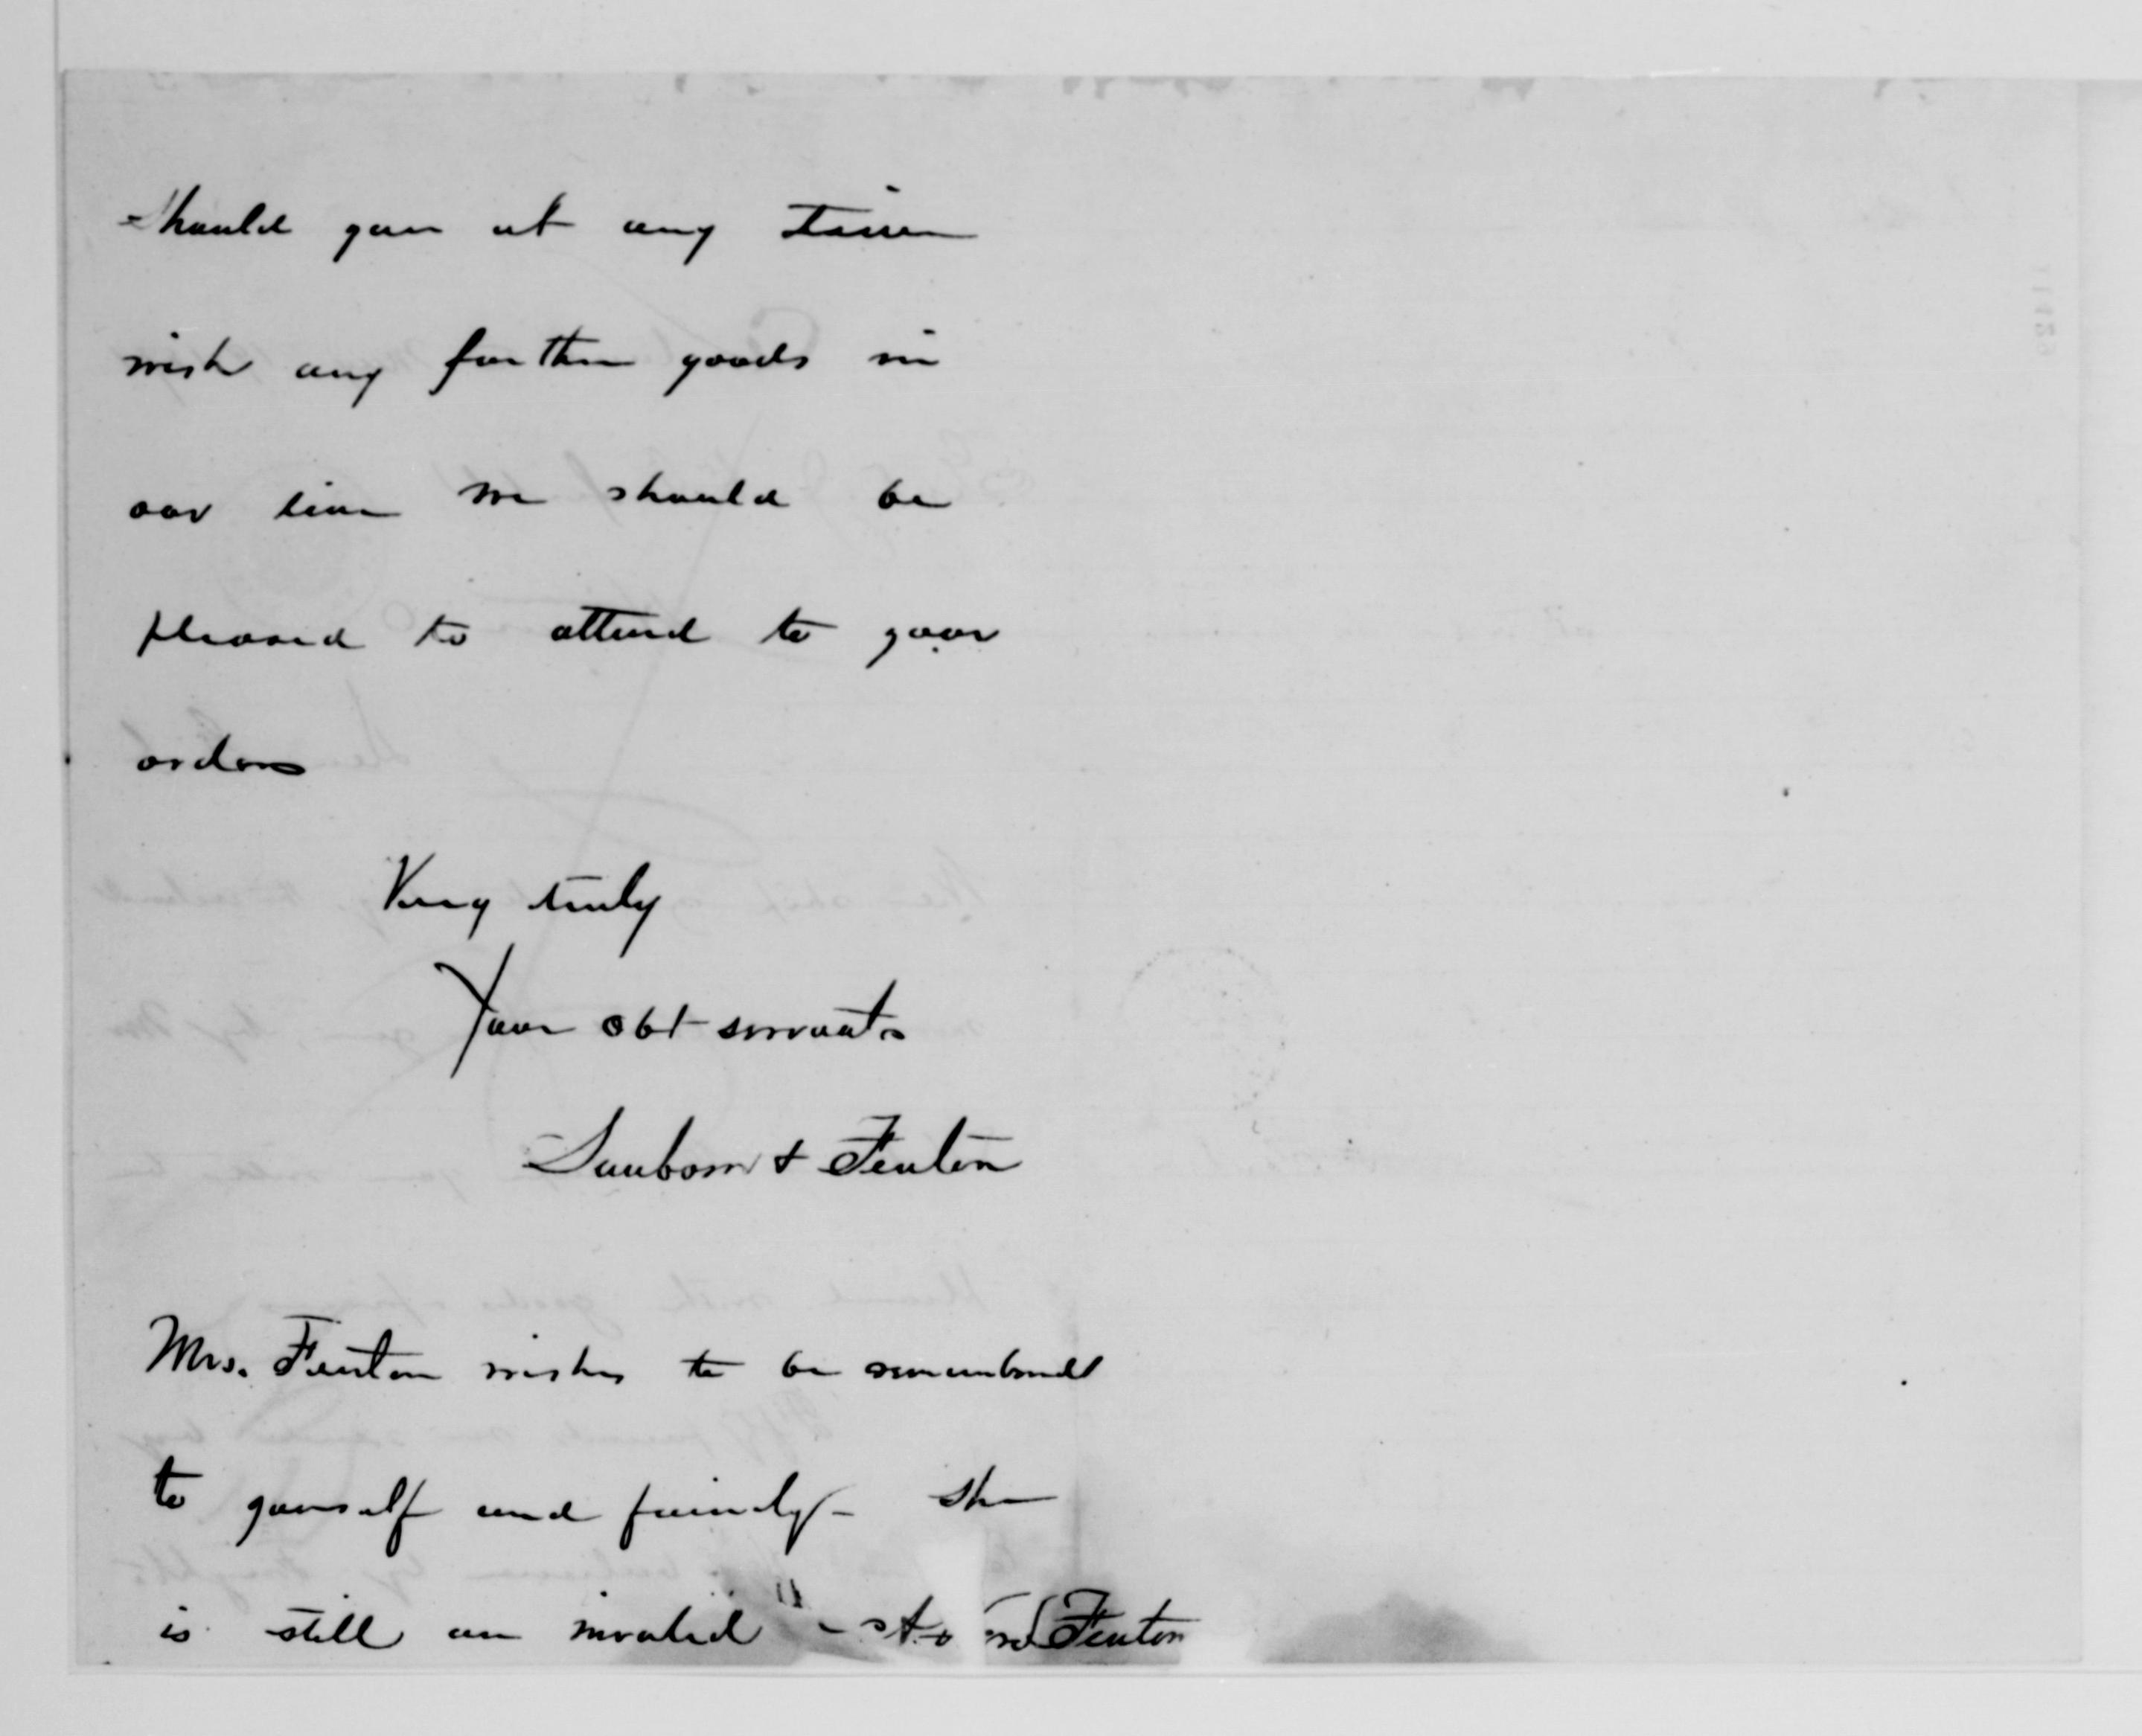 Should you at any time
wish any further goods in
our line we should be
pleased to attend to your
orders
Very truly
Your obt servants
Sanborn & Fenton
Mrs. Fenton wishes to be remembered
to yourself and family - She
is still an invalid - Fenton